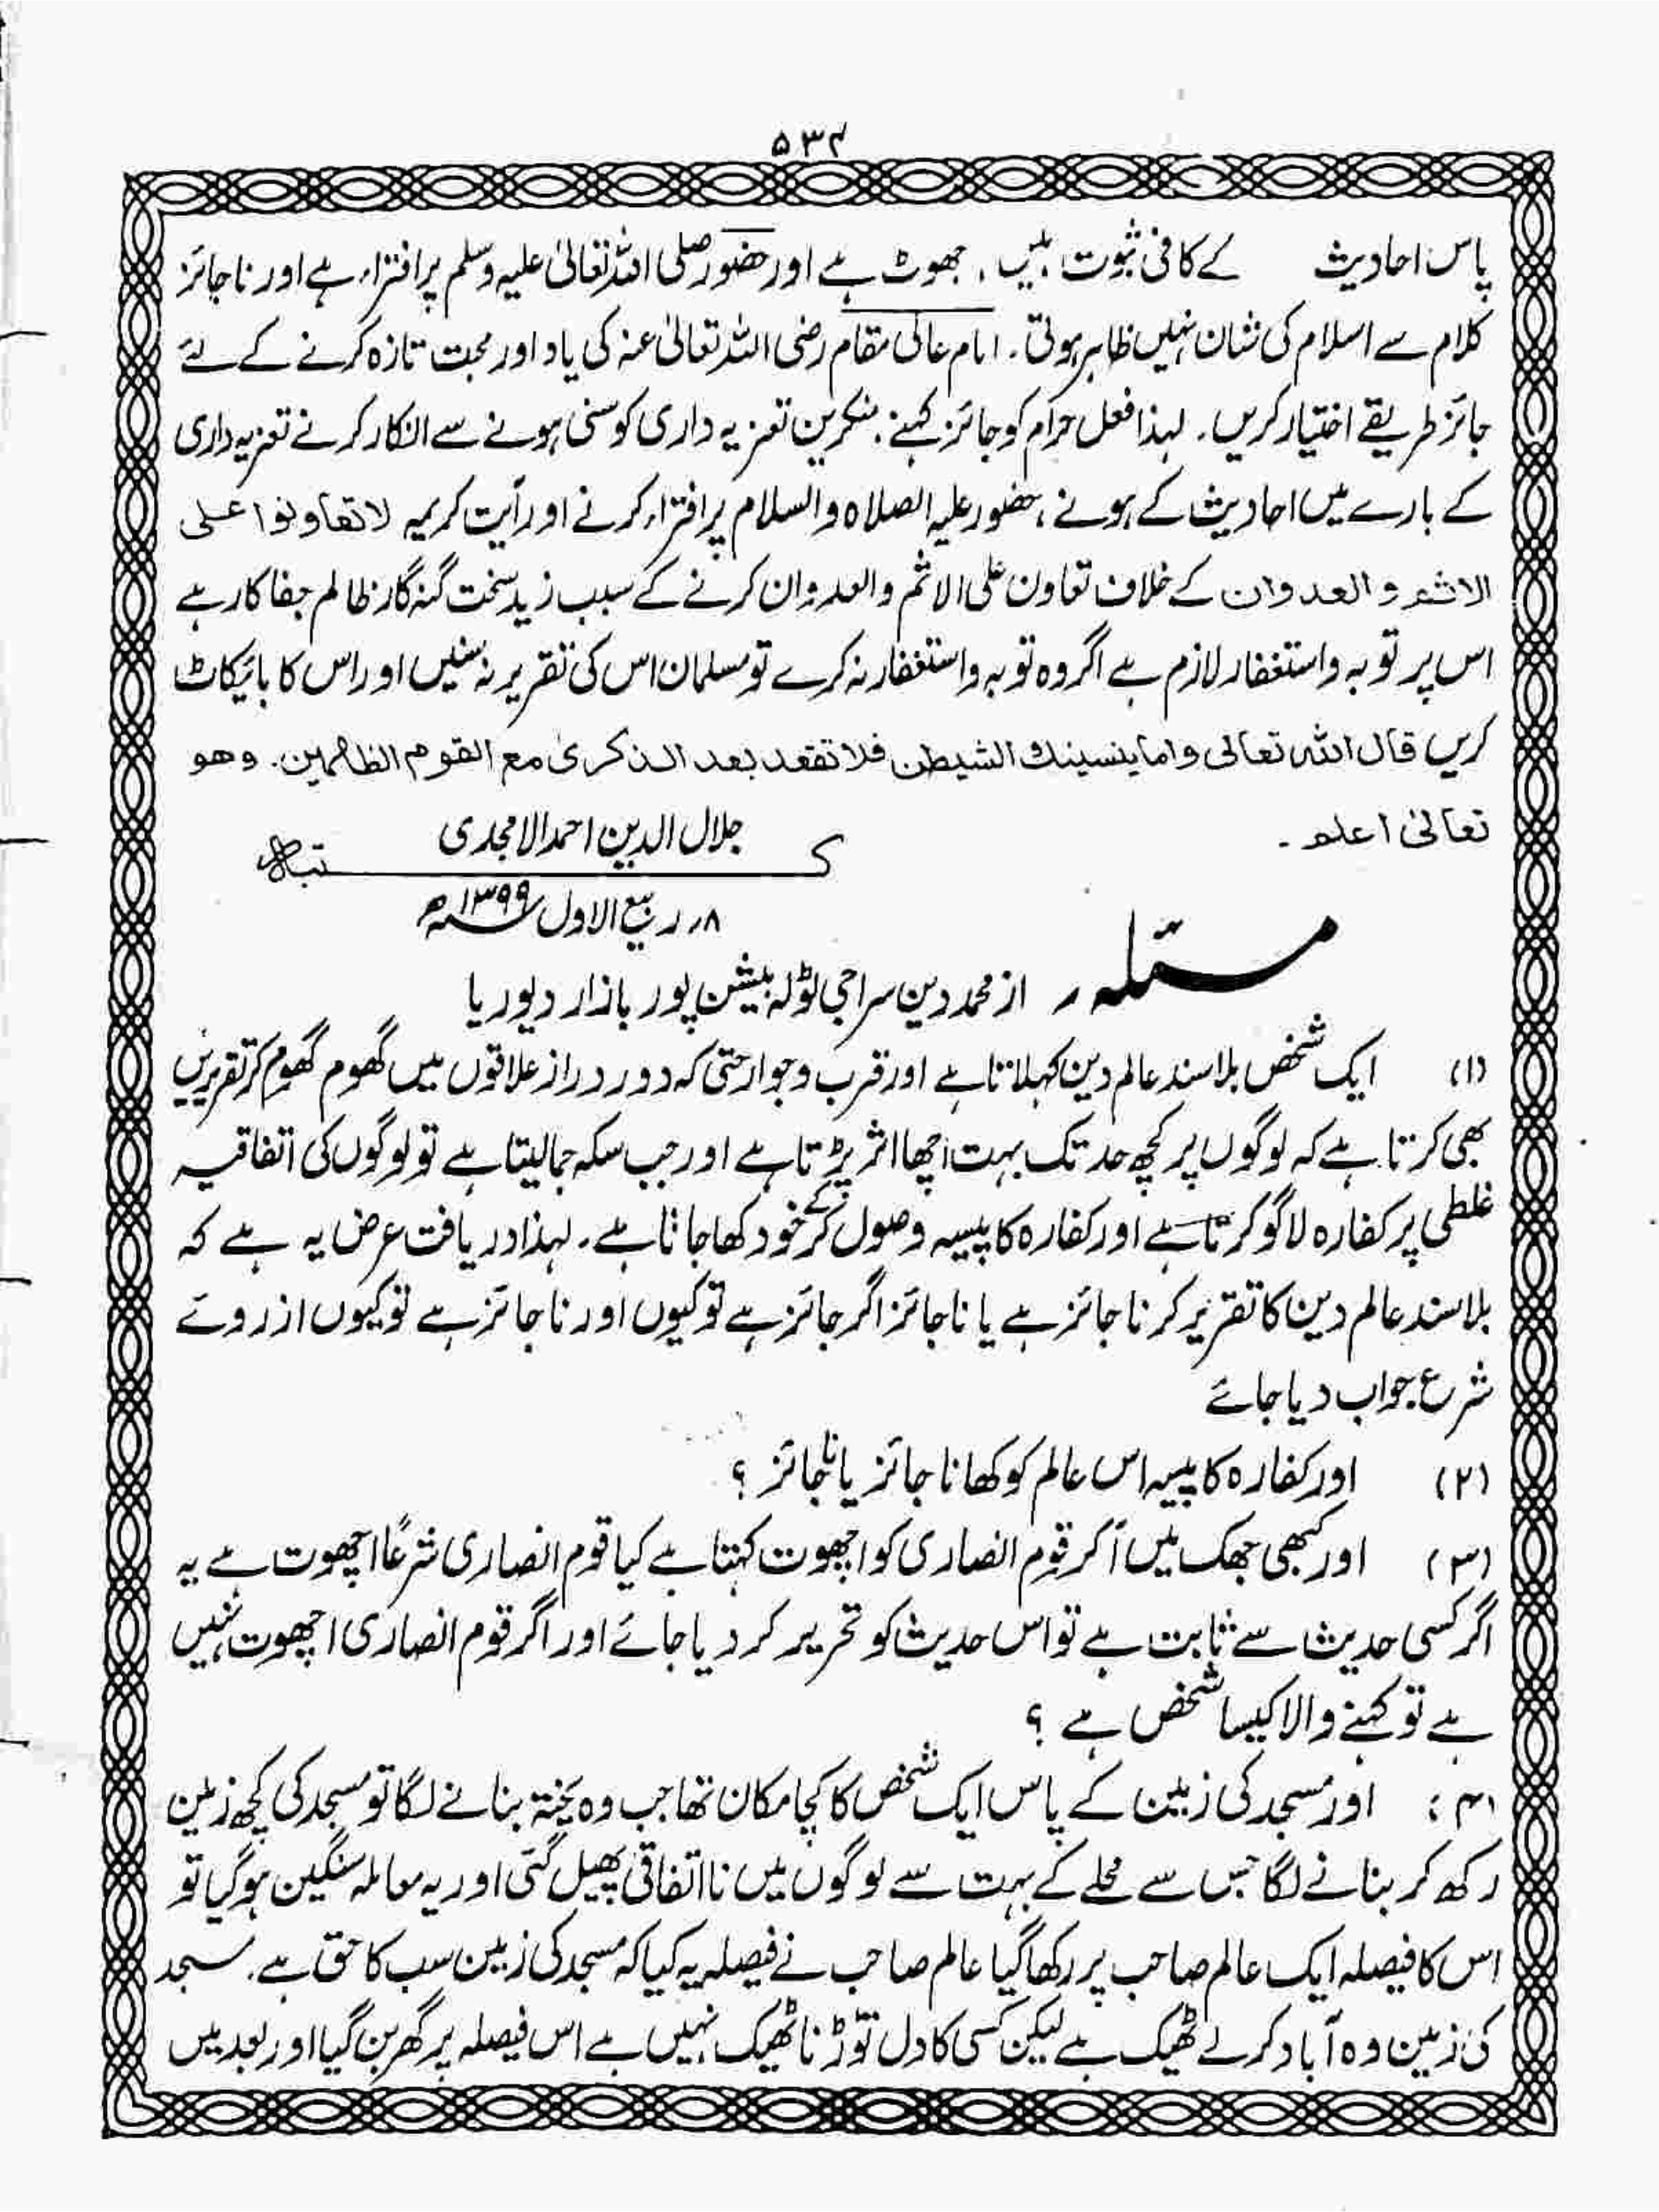 ۵۳۴
پاس احادیث کے کافی ثبوت ہیں، جھوٹ ہے اور حضور صلی اللہ تعالیٰ علیہ وسلم پر افتراء ہے اور ناجائز
کلام سے اسلام کی شان نہیں ظاہر ہوتی۔ امام عالی مقام رضی اللہ تعالیٰ عنہ کی یاد اور محبت تازہ کرنے کے لئے
جائز طریقے اختیار کریں۔ لہذا فعل حرام کو جائز کہنے، منکرین تعزیہ داری کو سنی ہونے سے انکار کرنے تعزیہ داری
کے بارے میں احادیث کے ہونے، حضور علیہ الصلاہ والسلام پر افتراء کرنے اور آیت کریمہ لا تعاونوا علی
الاثم والعدوان کے خلاف تعاون علی الاثم والعدوان کرنے کے سبب زید سخت گنہگار ظالم جفا کار ہے
اس پر توبہ واستغفار لازم ہے اگر وہ توبہ واستغفار نہ کرے تو مسلمان اس کی تقریر نہ سنیں اور اس کا بائیکاٹ
کریں قال اللہ تعالی واما ینسینك الشیطن فلا تقعد بعد الذکری مع القوم الظلمین۔ وھو
تعالیٰ اعلم۔
جلال الدین احمد الامجدی
کتبہ
۸؍ ربیع الاول ۱۳۹۹ھ
مسئلہ ؍ از محمد دین سراجی ٹولہ بیشن پور بازار دیوریا
(۱) ایک شخص بلا سند عالم دین کہلاتا ہے اور قرب وجوار حتی کہ دور دراز علاقوں میں گھوم گھوم کر تقریریں
بھی کرتا ہے کہ لوگوں پر کچھ حد تک بہت اچھا اثر پڑتا ہے اور جب سکہ جما لیتا ہے تو لوگوں کی اتفاقیہ
غلطی پر کفارہ لاگو کرتا ہے اور کفارہ کا پیسہ وصول کر کے خود کھا جاتا ہے۔ لہذا دریافت عرض یہ ہے کہ
بلا سند عالم دین کا تقریر کرنا جائز ہے یا ناجائز اگر جائز ہے تو کیوں اور ناجائز ہے تو کیوں از روئے
شرع جواب دیا جائے
(۲) اور کفارہ کا پیسہ اس عالم کو کھانا جائز یا ناجائز ؟
(۳) اور کبھی جھک میں آکر قوم انصاری کو اچھوت کہتا ہے کیا قوم انصاری شرعًا اچھوت ہے یہ
اگر کسی حدیث سے ثابت ہے تو اس حدیث کو تحریر کر دیا جائے اور اگر قوم انصاری اچھوت نہیں
ہے تو کہنے والا کیسا شخص ہے ؟
(۴) اور مسجد کی زمین کے پاس ایک شخص کا کچا مکان تھا جب وہ پختہ بنانے لگا تو مسجد کی کچھ زمین
رکھ کر بنانے لگا جس سے محلے کے بہت سے لوگوں میں نا اتفاقی پھیل گئی اور یہ معاملہ سنگین ہو گیا تو
اس کا فیصلہ ایک عالم صاحب پر رکھا گیا عالم صاحب نے فیصلہ یہ کیا کہ مسجد کی زمین سب کا حق ہے۔ مسجد
کی زمین وہ آباد کر لے ٹھیک ہے لیکن کسی کا دل توڑنا ٹھیک نہیں ہے اس فیصلہ پر گھر بن گیا اور بعد میں